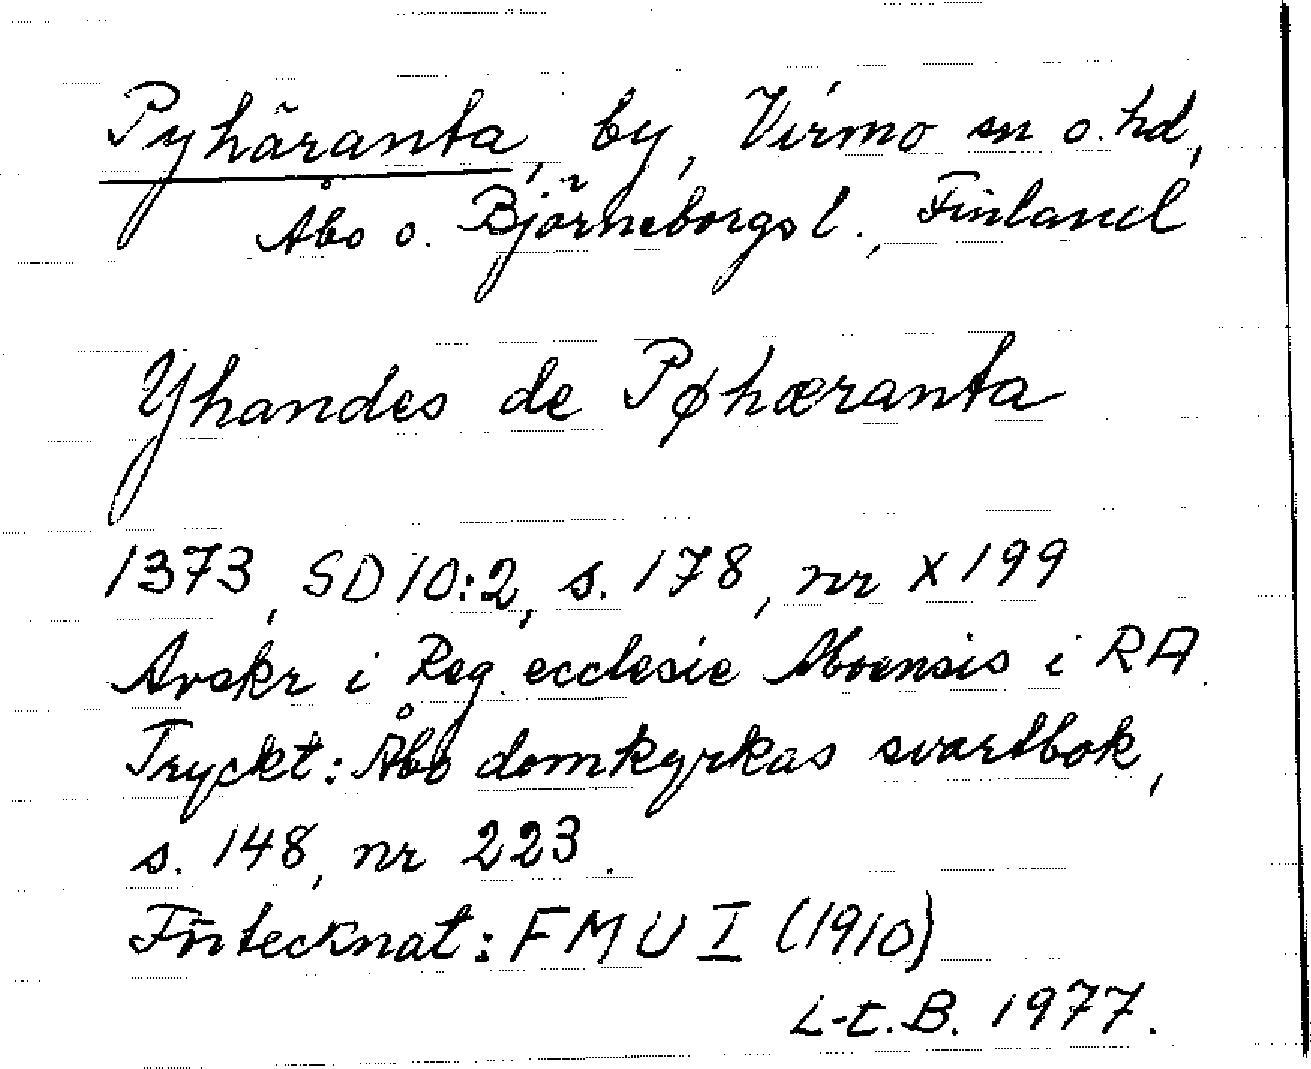 Pyhäranta, by, Virmo sn o. hd,
Åbo o. Björneborgs l., Finland
Yhandes de Pøhæranta
1373, SD 10:2, s. 178, nr X 199
Avskr i Reg. ecclesie Aboensis i RA.
Tryckt: Åbo domkyrkas svartbok,
s. 148, nr 223.
Förtecknat: FMU I (1910)
L-E.B. 1977.